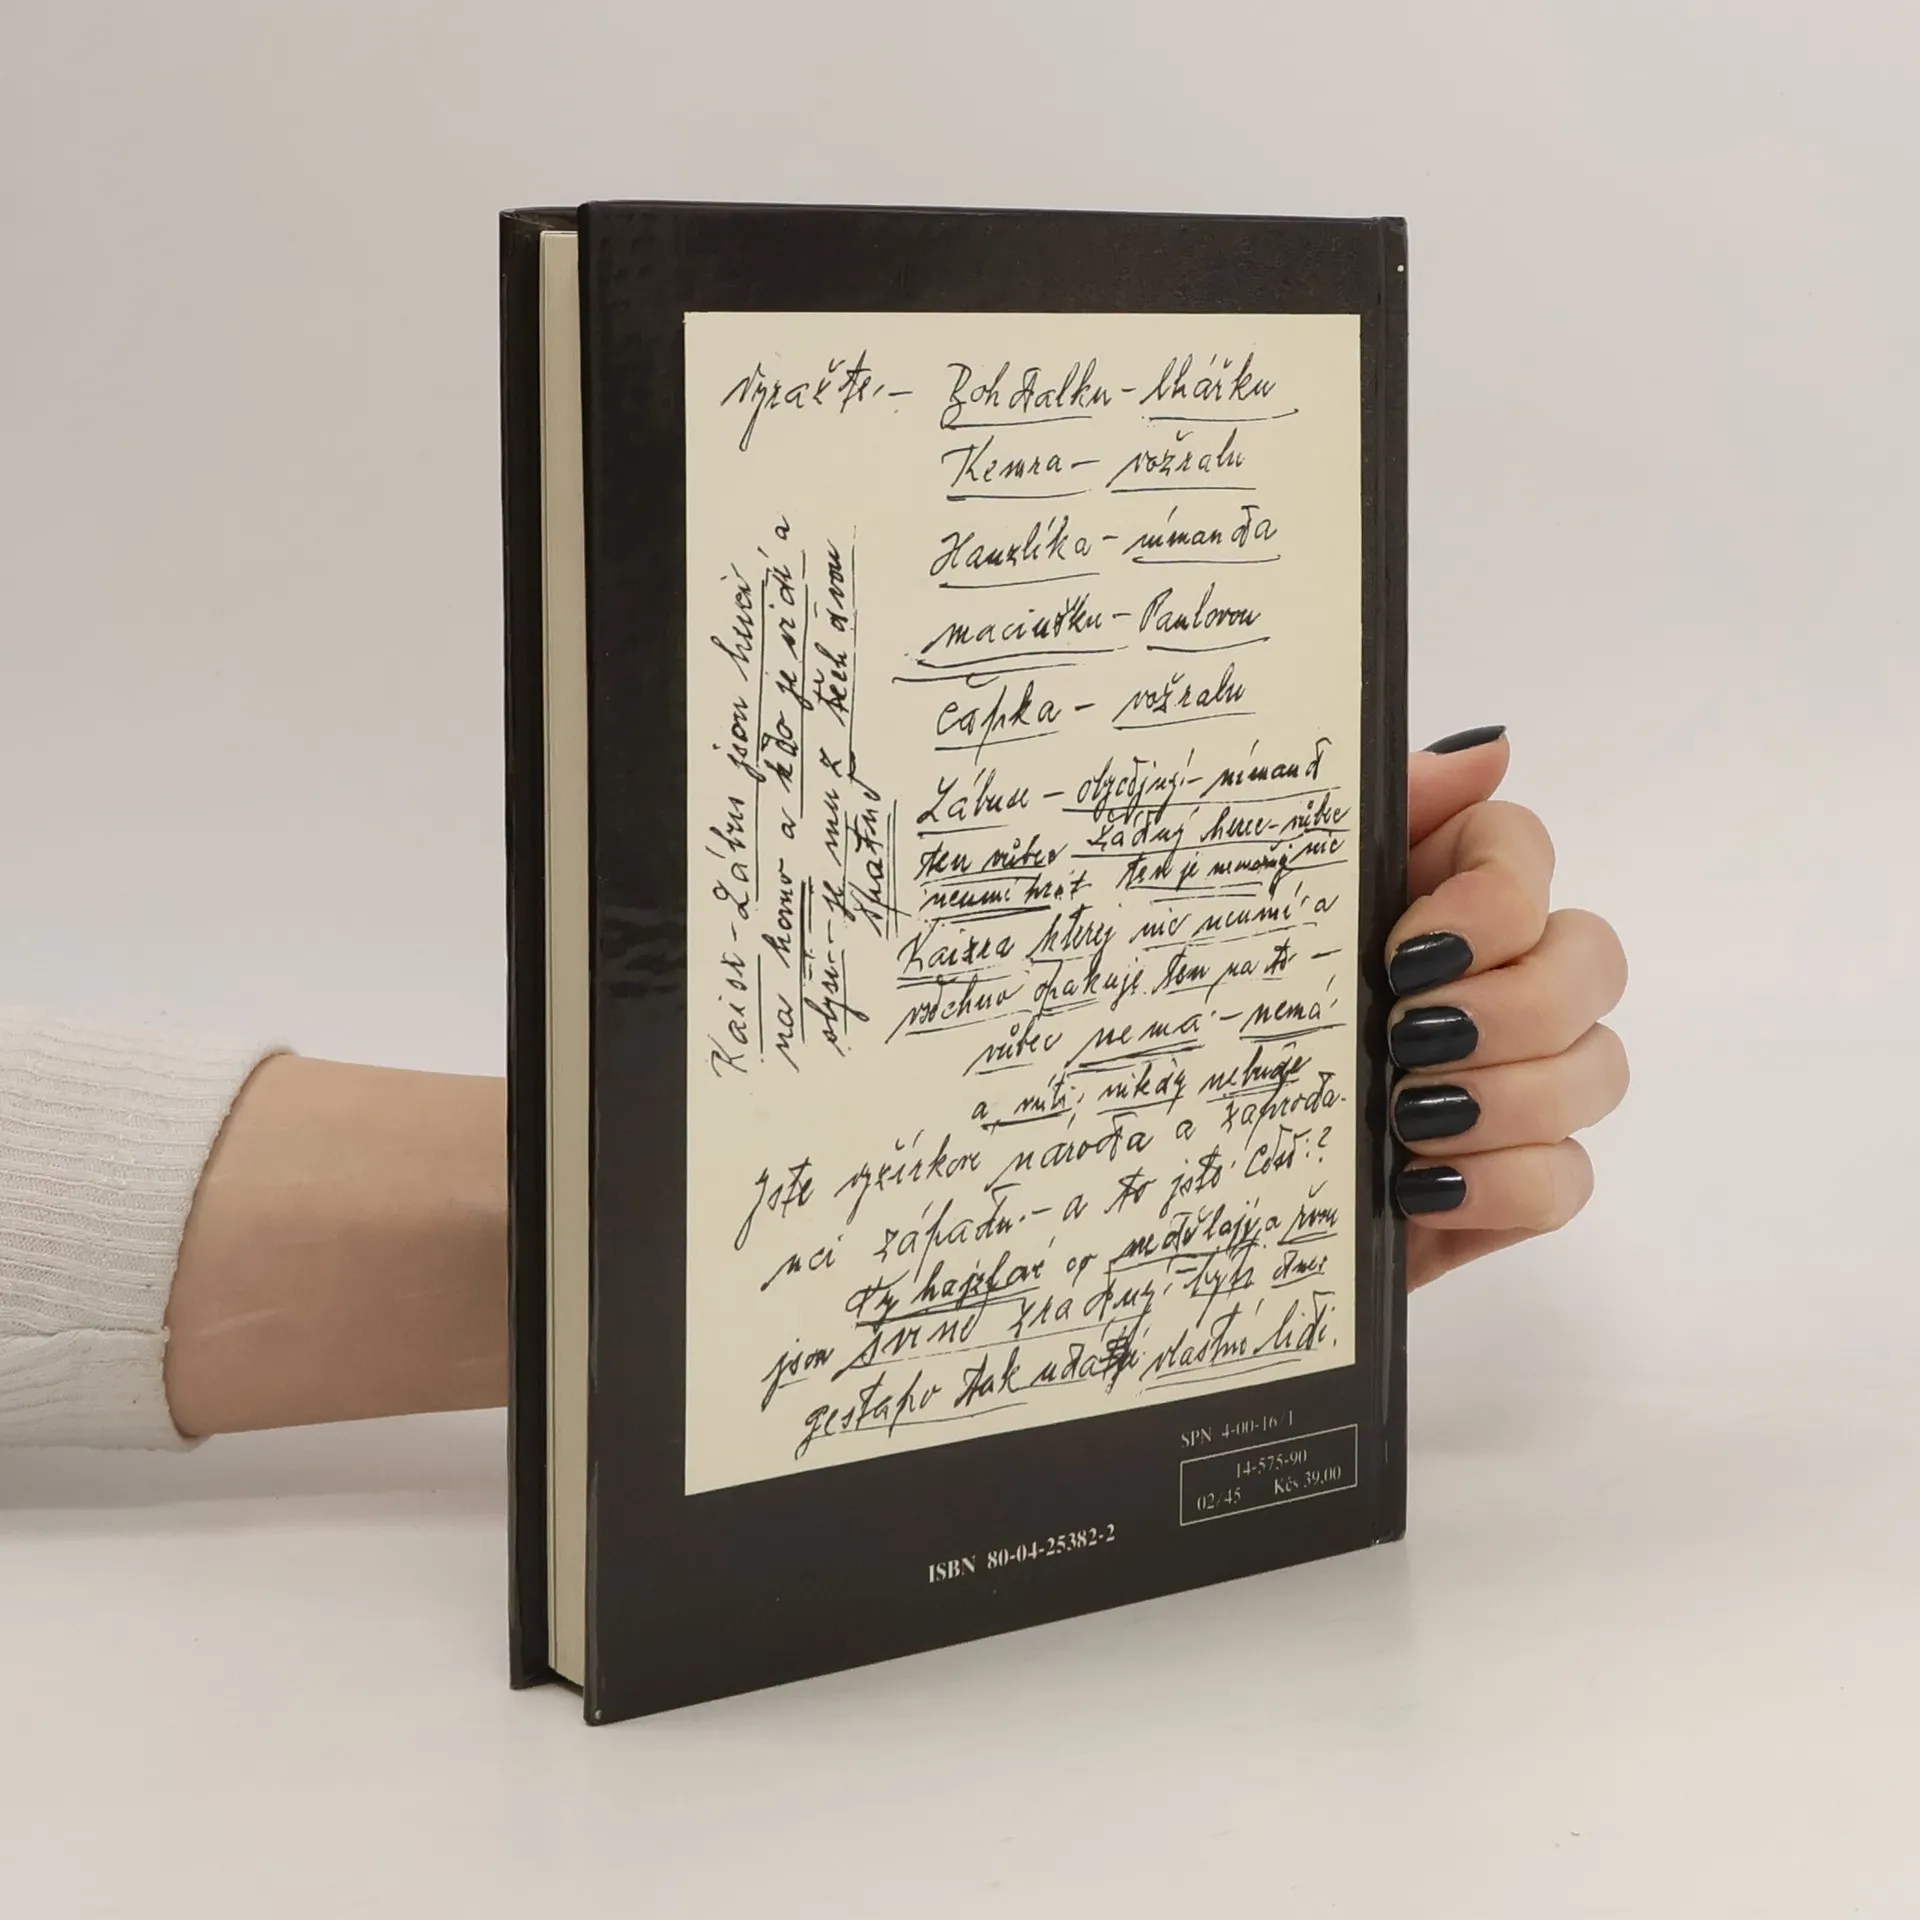 Vyražte.- Bohdalku - lhářku
Kemra - vožralu
Hanzlíka - nímanda
maciušku - Pavlovou
čapka - vožralu
Zábuse - obyčejný - nímand
ten vůbec žádný herec - vůbec
neumí hrát ten je nemožný nic
Kaizra kterej nic neumí a
všechno opakuje ten na to -
vůbec nemá - nemá
a nikdy nebude
Jste vyžírkové národa a zaproda-
nci západu.- a to jste Coto:?
Ty hajzlové co nedělají a řvou
jsou svině zrádný - byli dnes
gestapo tak udá vlastní lidi.
Kaisr - Zábrus jsou herci
na hovno a kdo je vidí a
slyší - je mu z těch dvou
špatně
SPN 4-00-16/1
14-575-90
02/45 Kčs 39,00
ISBN 80-04-25382-2